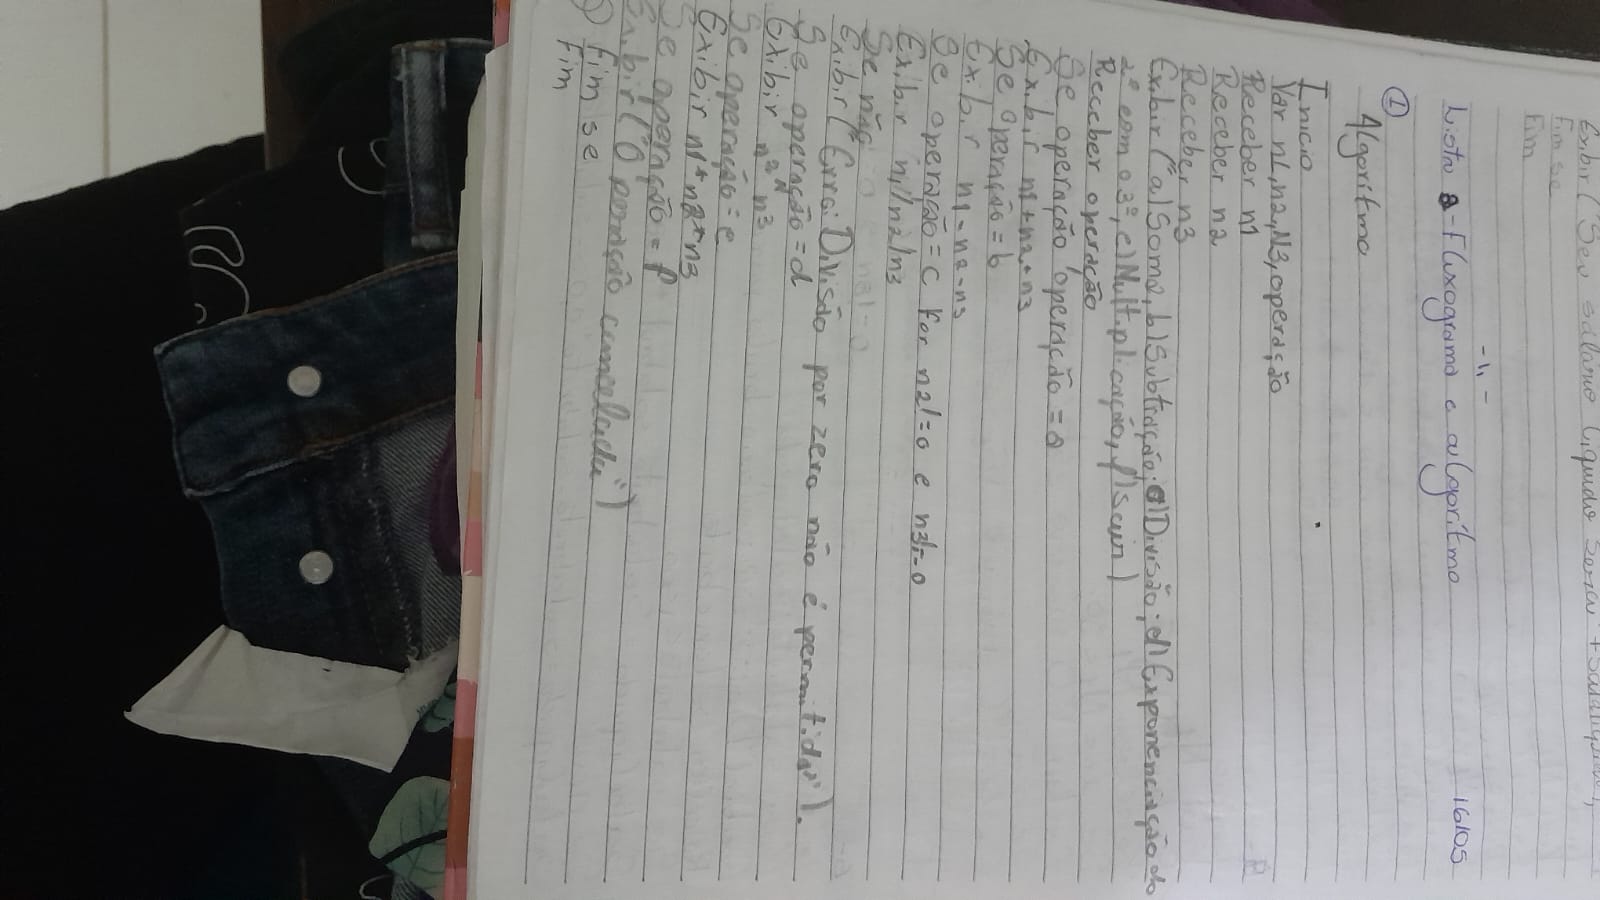 Exibir ("Seu salário líquido será: " +
Fim se
Fim
-11-
Lista 2 - Fluxograma e algorítmo 16/05
① Algorítmo
Início
Var n1, n2, N3, operação
Receber n1
Receber n2
Receber n3
Exibir ("a) Soma, b) Subtração, c) Divisão; d) Exponenciação do
2º com o 3º, e) Multiplicação, f) sair)
Receber operação
Se operação operação = a
Exibir n1 + n2 + n3
Se operação = b
Exibir n1 - n2 - n3
Se operação = c for n2 != 0 e n3 != 0
Exibir n1/n2/n3
Se não
Exibir (" Erro: Divisão por zero não é permitida").
Se operação = d
Exibir n2^n3
Se operação = e
Exibir n1 * n2 * n3
Se operação = f
Exibir ("O peração cancelada")
Fim se
Fim